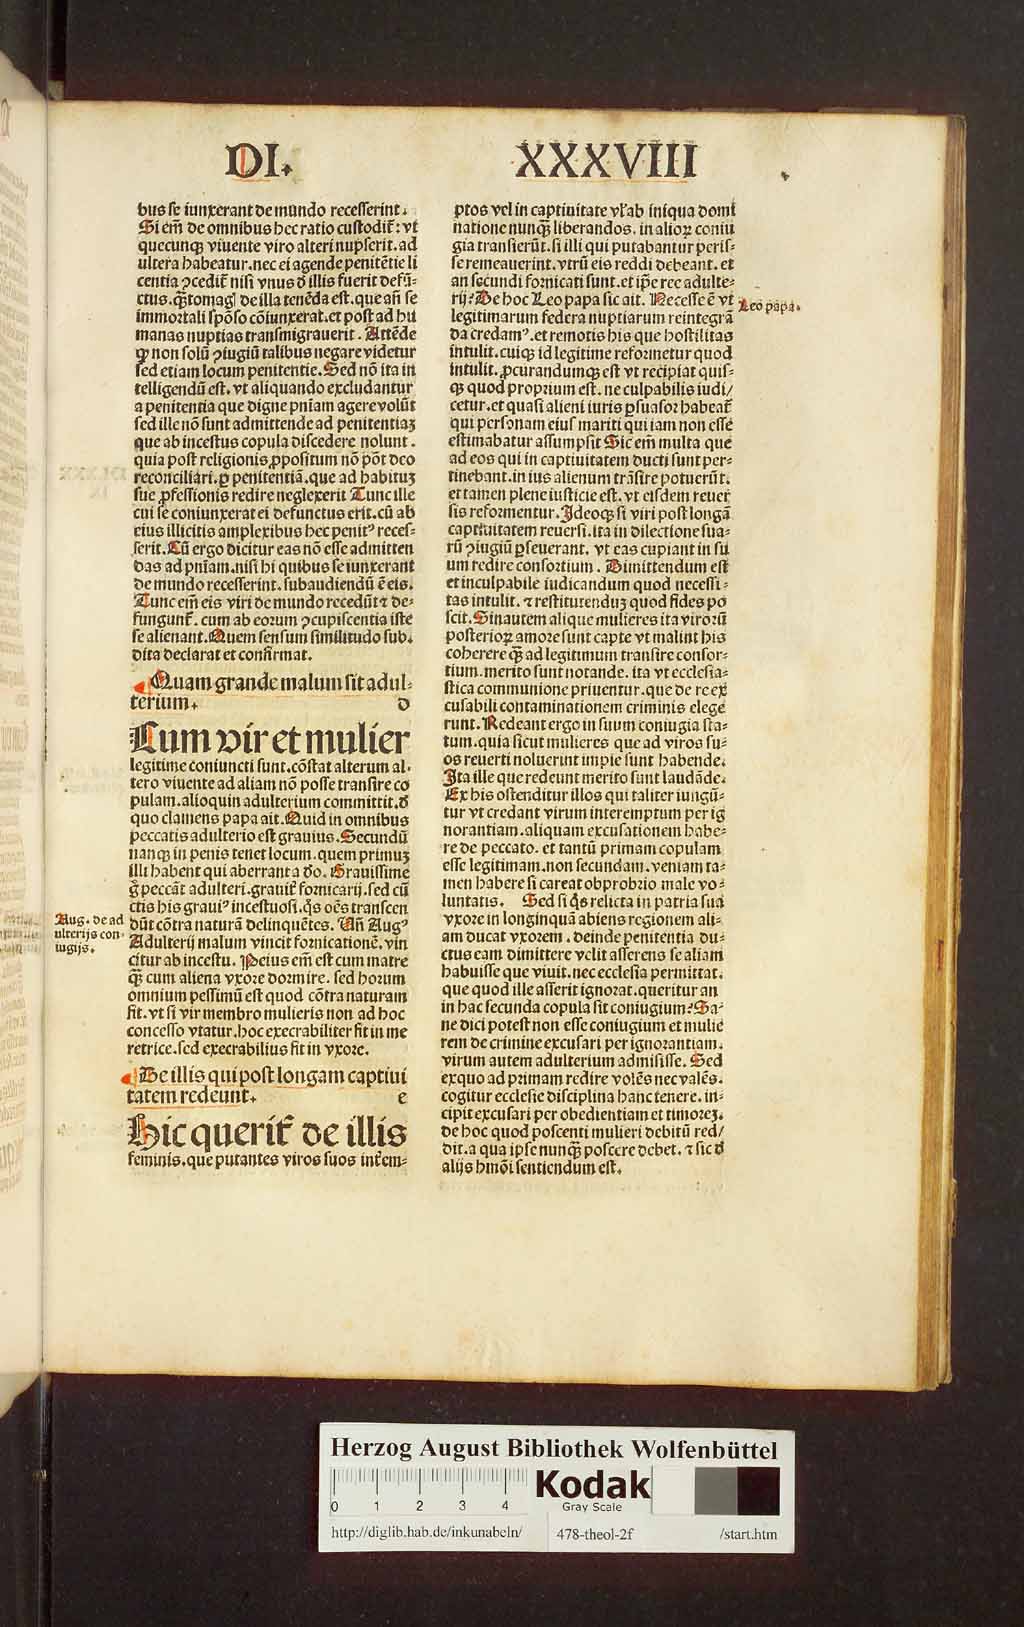 DI. XXXVIII
bus se iunxerant de mundo recesserint.
Si em̄ de omnibus hec ratio custodit᷑: vt
quecunqꝫ viuente viro alteri nupserit. ad
ultera habeatur. nec ei agende penitētie li
centia ꝯcedit᷑ nisi vnus đ illis fuerit defū-
ctus. q̄tomagꝭ de illa tenēda est. que an̄ se
immortali spōso cōiunxerat. et post ad hu
manas nuptias transmigrauerit. Attēde
ꝙ non solū ꝯiugiū talibus negare videtur
sed etiam locum penitentie. Sed nō ita in
telligendū est. vt aliquando excludantur
a penitentia que digne pn̄iam agere volūt
sed ille nō sunt admittende ad penitentiaꝫ
que ab incestus copula discedere nolunt.
quia post religionis ꝓpositum nō pōt deo
reconciliari. ꝑ penitentiā. que ad habituꝫ
sue ꝓfessionis redire neglexerit Tunc ille
cui se coniunxerat ei defunctus erit. cū ab
eius illicitis amplexibus hec penitꝰ reces-
serit. Cū ergo dicitur eas nō esse admitten
das ad pn̄iam. nisi hi quibus se iunxerant
de mundo recesserint. subaudiendū ē eis.
Tunc em̄ eis viri de mundo recedūt ⁊ de-
fungunt᷑. cum ab eorum ꝯcupiscentia iste
se alienant. Quem sensum similitudo sub-
dita declarat et confirmat.
Quam grande malum sit adul-
terium. d
Cum vir et mulier
legitime coniuncti sunt. cōstat alterum al-
tero viuente ad aliam nō posse transire co
pulam. alioquin adulterium committit. đ
quo clamens papa ait. Quid in omnibus
peccatis adulterio est grauius. Secundū
nanqꝫ in penis tenet locum. quem primuꝫ
illi habent qui aberrant a do. Grauissime
g̊ peccāt adulteri. grauit᷑ fornicarij. sed cū
ctis his grauiꝰ incestuosi. q̄s oēs transcen
Aug. de ad
ulterijs con-
iugijs.
dūt cōtra naturā delinquētes. Un̄ Augꝰ
Adulterij malum vincit fornicationē. vin
citur ab incestu. Peius em̄ est cum matre
q̄ꝫ cum aliena vxore dormire. sed horum
omnium pessimū est quod cōtra naturam
fit. vt si vir membro mulieris non ad hoc
concesso vtatur. hoc execrabiliter fit in me
retrice. sed execrabilius fit in vxore.
De illis qui post longam captiui
tatem redeunt. e
Hic querit᷑ de illis
feminis. que putantes viros suos int᷑em-
ptos vel in captiuitate vl᷑ ab iniqua domi
natione nunq̄ꝫ liberandos. in alioꝝ coniu
gia transierūt. si illi qui putabantur peris-
se remeauerint. vtrū eis reddi debeant. et
an secundi fornicati sunt. et ip̄e ree adulte-
rij? De hoc Leo papa sic ait. Necesse ē vt
Leo papa.
legitimarum federa nuptiarum reintegrā
da credamꝰ. et remotis his que hostilitas
intulit. cuiqꝫ id legitime reformetur quod
intulit. ꝓcurandumqꝫ est vt recipiat quis-
qꝫ quod proprium est. ne culpabilis iudi/
cetur. et quasi alieni iuris ꝑsuasor habeat᷑
qui personam eius mariti qui iam non esse
estimabatur assumpsit Sic em̄ multa que
ad eos qui in captiuitatem ducti sunt per-
tinebant. in ius alienum trāsire potuerūt.
et tamen plene iusticie est. vt eisdem reuer
sis reformentur. Ideoqꝫ si viri post longā
captiuitatem reuersi. ita in dilectione sua-
rū ꝯiugiū ꝑseuerant. vt eas cupiant in su
um redire consortium. Dimittendum est
et inculpabile iudicandum quod necessi-
tas intulit. ⁊ restituenduꝫ quod fides po
scit. Sinautem alique mulieres ita viroꝝ
posterioꝝ amore sunt capte vt malint his
coherere q̄ꝫ ad legitimum transire consor-
tium. merito sunt notande. ita vt ecclesia-
stica communione priuentur. que de re ex
cusabili contaminationem criminis elege
runt. Redeant ergo in suum coniugia sta-
tum. quia sicut mulieres que ad viros su-
os reuerti noluerint impie sunt habende.
Ita ille que redeunt merito sunt laudāde.
Ex his ostenditur illos qui taliter iungū-
tur vt credant virum interemptum per ig
norantiam. aliquam excusationem habe-
re de peccato. et tantū primam copulam
esse legitimam. non secundam. veniam ta-
men habere si careat obprobrio male vo-
luntatis. Sed si q̄s relicta in patria sua
vxore in longinquā abiens regionem ali-
am ducat vxorem. deinde penitentia du-
ctus eam dimittere velit asserens se aliam
habuisse que viuit. nec ecclesia permittat.
que quod ille asserit ignorat. queritur an
in hac secunda copula sit coniugium? Sa-
ne dici potest non esse coniugium et mulie
rem de crimine excusari per ignorantiam.
virum autem adulterium admisisse. Sed
exquo ad primam redire volēs nec valēs.
cogitur ecclesie disciplina hanc tenere. in-
cipit excusari per obedientiam et timoreꝫ.
de hoc quod poscenti mulieri debitū red/
dit. a qua ipse nunq̄ꝫ poscere debet. ⁊ sic đ
alijs hmōi sentiendum est.
Herzog August Bibliothek Wolfenbüttel
0 1 2 3 4
Kodak
Gray Scale
http://diglib.hab.de/inkunabeln/ 478-theol-2f /start.htm